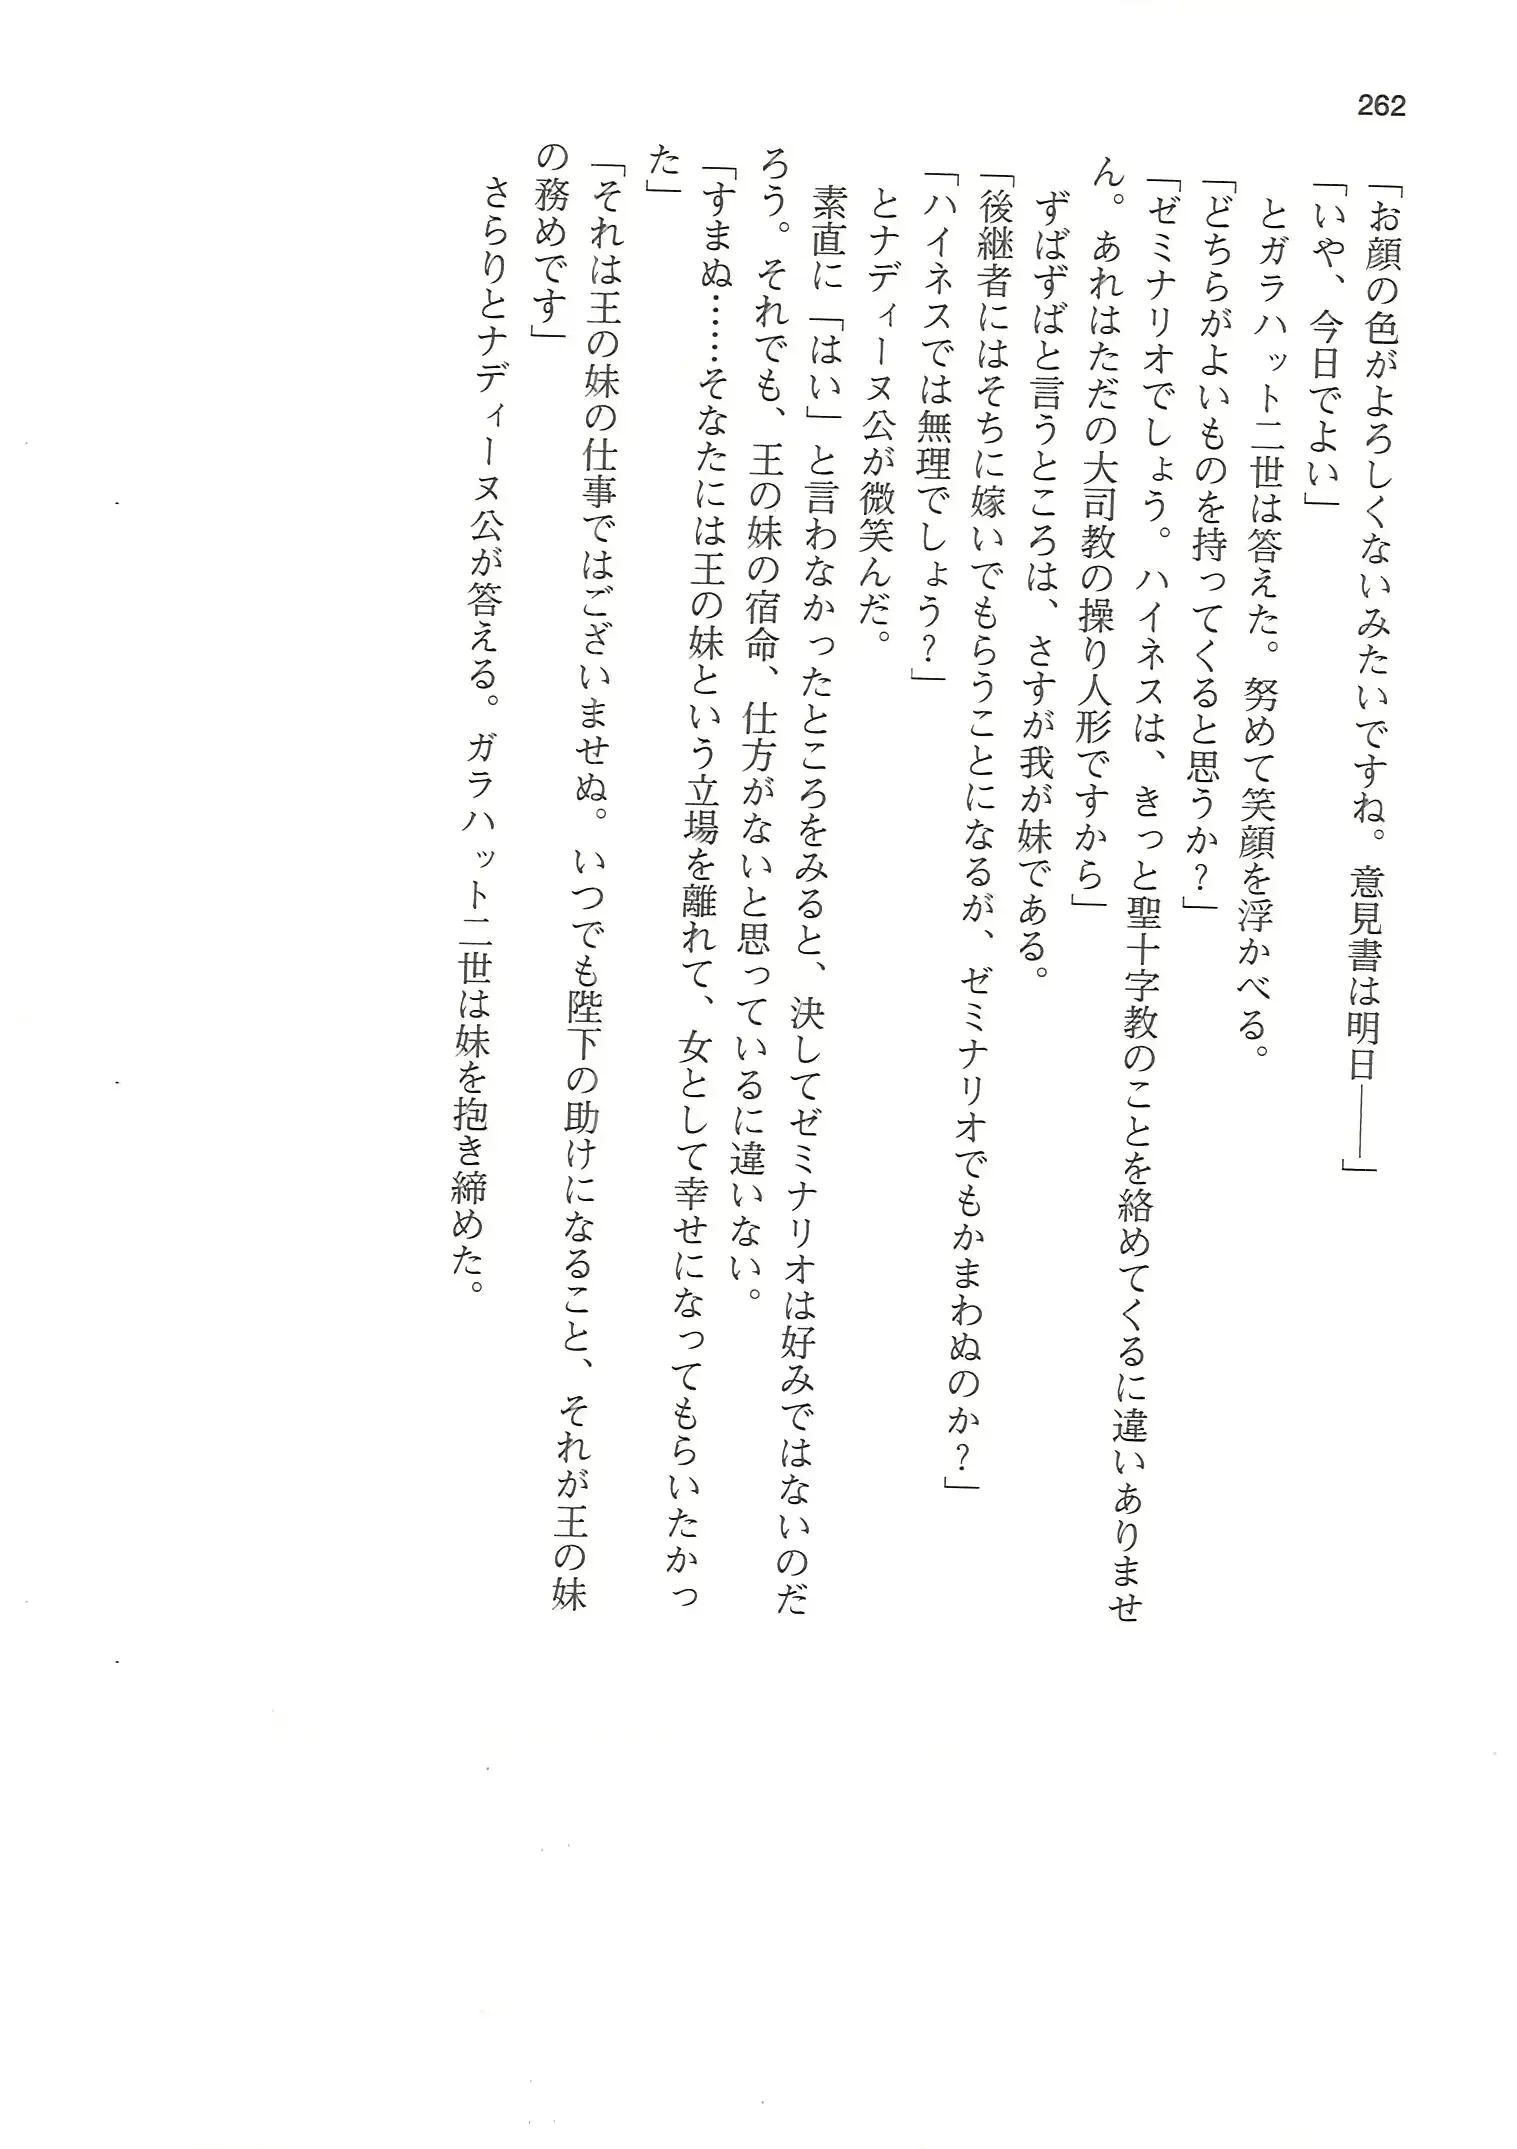 262
「お顔の色がよろしくないみたいですね。意見書は明日――」
「いや、今日でよい」
とガラハット二世は答えた。努めて笑顔を浮かべる。
「どちらがよいものを持ってくると思うか?」
「ゼミナリオでしょう。ハイネスは、きっと聖十字教のことを絡めてくるに違いありませ
ん。あれはただの大司教の操り人形ですから」
ずばずばと言うところは、さすが我が妹である。
「後継者にはそちに嫁いでもらうことになるが、ゼミナリオでもかまわぬのか?」
「ハイネスでは無理でしょう?」
とナディーヌ公が微笑んだ。
素直に「はい」と言わなかったところをみると、決してゼミナリオは好みではないのだ
ろう。それでも、王の妹の宿命、仕方がないと思っているに違いない。
「すまぬ……そなたには王の妹という立場を離れて、女として幸せになってもらいたかっ
た」
「それは王の妹の仕事ではございませぬ。いつでも陛下の助けになること、それが王の妹
の務めです」
さらりとナディーヌ公が答える。ガラハット二世は妹を抱き締めた。